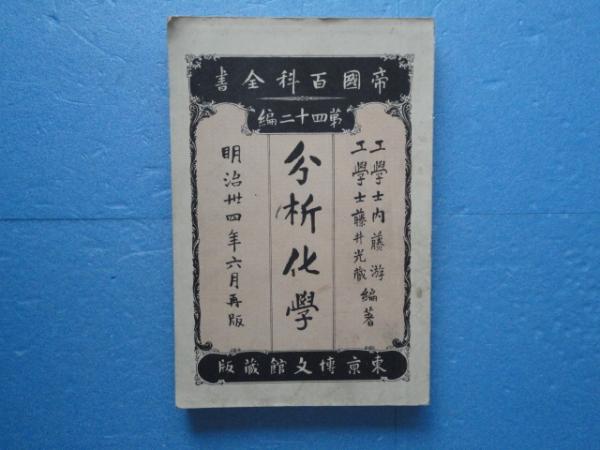 帝國百科全書
第四十二編
工學士内藤游
工學士藤井光蔵
編著
分析化學
明治卅四年六月再版
東京博文館蔵版